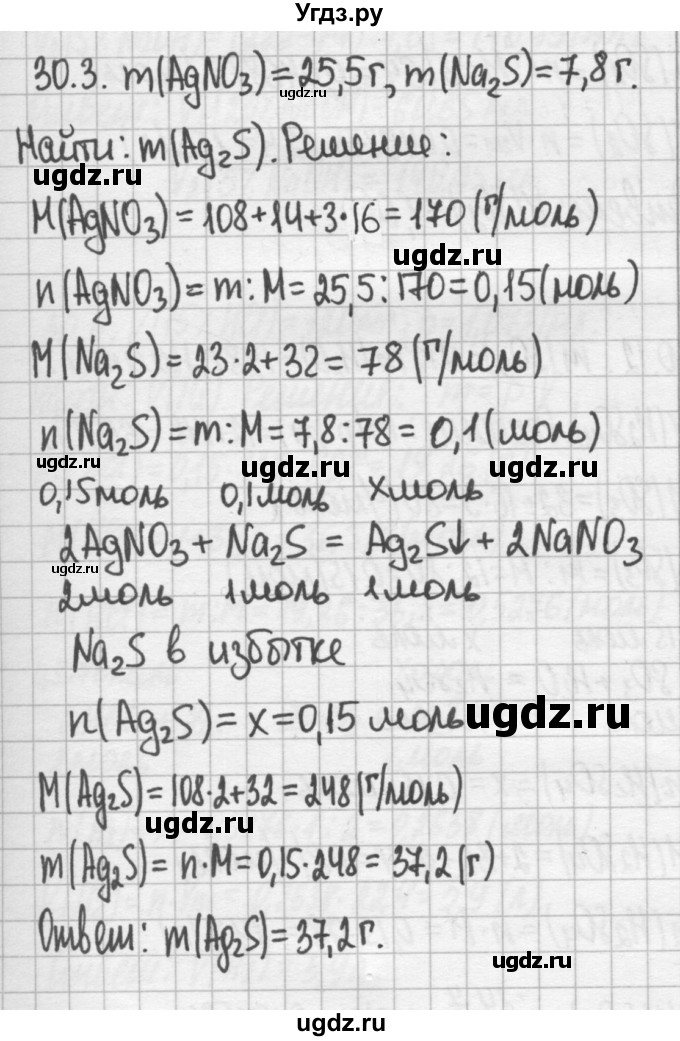 Угдз.ру
30.3. m(AgNO₃)=25,5г, m(Na₂S)=7,8г.
ugdz.ru
Найти: m(Ag₂S). Решение:
ugdz.ru
M(AgNO₃)=108+14+3·16=170(г/моль)
ugdz.ru
n(AgNO₃)=m:M=25,5:170=0,15(моль)
M(Na₂S)=23·2+32=78(г/моль)
n(Na₂S)=m:M=7,8:78=0,1(моль)
ugdz.ru ugdz.ru
0,15моль 0,1моль xмоль
2AgNO₃+Na₂S=Ag₂S↓+2NaNO₃
ugdz.ru
2моль 1моль 1моль
Na₂S в избытке
n(Ag₂S)=x=0,15 моль
ugdz.ru
M(Ag₂S)=108·2+32=248(г/моль)
ugdz.ru
m(Ag₂S)=n·M=0,15·248=37,2(г)
Ответ: m(Ag₂S)=37,2г.
ugdz.ru
ugdz.ru